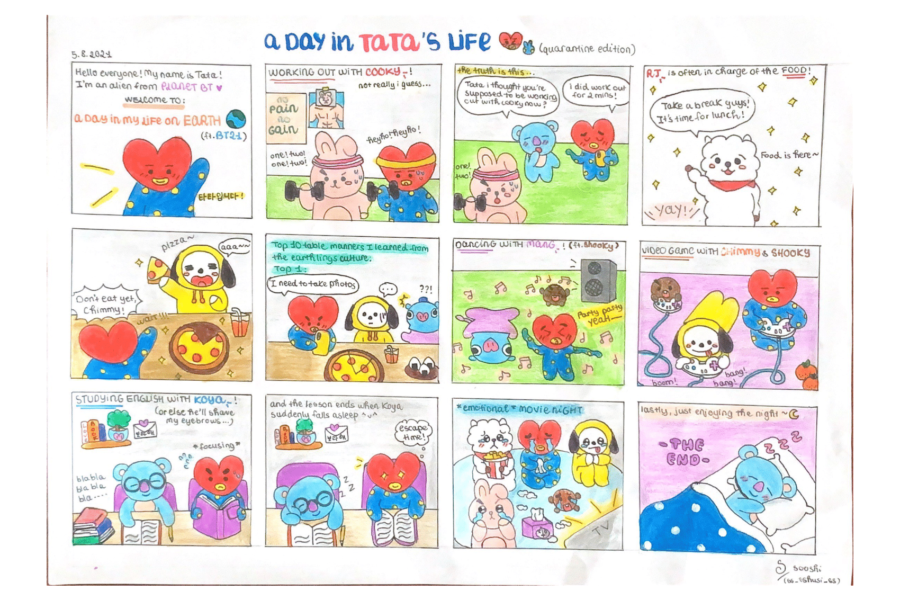 a DAY in TATA'S LIFE (quarantine edition)
5.8.2021
Hello everyone! My name is Tata!
I'm an alien from PLANET BT ♥
WELCOME TO:
a DAY in MY LIFE ON EARTH
(ft. BT21)
타타입니다!
WORKING OUT WITH COOKY~!
not really i guess...
no
PAIN
no
GAIN
Heyho! Heyho!
one! two!
one! two!
the truth is this...
Tata i thought you're
supposed to be working
out with cooky now?
I did work out
for 2 mins!
one!
two!
RJ is often in charge of the FOOD!
Take a break guys!
It's time for lunch!
Food is here~
YAY!
pizza~
aaa~~
Don't eat yet,
Chimmy!
wait!!!
Top 10 table manners I learned from
the earthlings culture:
Top 1:
I need to take photos
...
??!
DANCING WITH MANG! (ft. Shooky)
Party party
yeah
VIDEO GAME WITH CHIMMY & SHOOKY
boom!
bang!
bang!
STUDYING ENGLISH WITH KOYA~!
(or else he'll shave
my eyebrows...)
*focusing*
bla bla
bla bla
bla....
and the lesson ends when Koya
suddenly falls asleep ~
escape
time!
z z z
*emotional* MOVIE NIGHT
TV
lastly, just enjoying the night ~
-THE
END-
z z z
sooshi